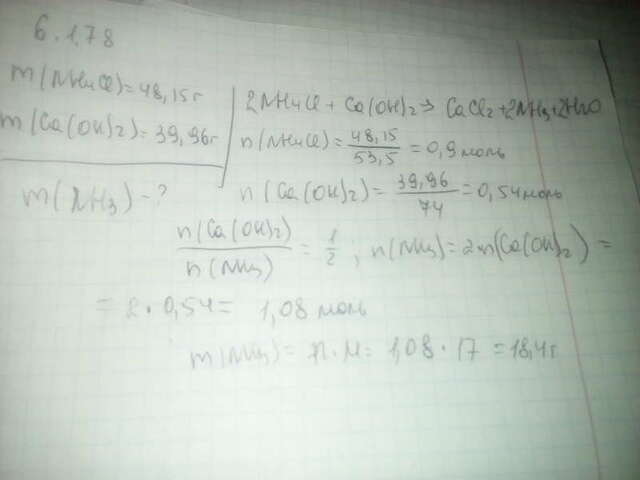 6.178
m(NH4Cl)=48,15г
m(Ca(OH)2)=39,96г
m(NH3)-?
2NH4Cl + Ca(OH)2 → CaCl2+2NH3+2H2O
n(NH4Cl)=48,15/53,5=0,9моль
n(Ca(OH)2)=39,96/74=0,54моль
n(Ca(OH)2)/n(NH3)=1/2; n(NH3)=2·n(Ca(OH)2)=
=2·0,54= 1,08 моль
m(NH3)= n·M= 1,08·17=18,4г